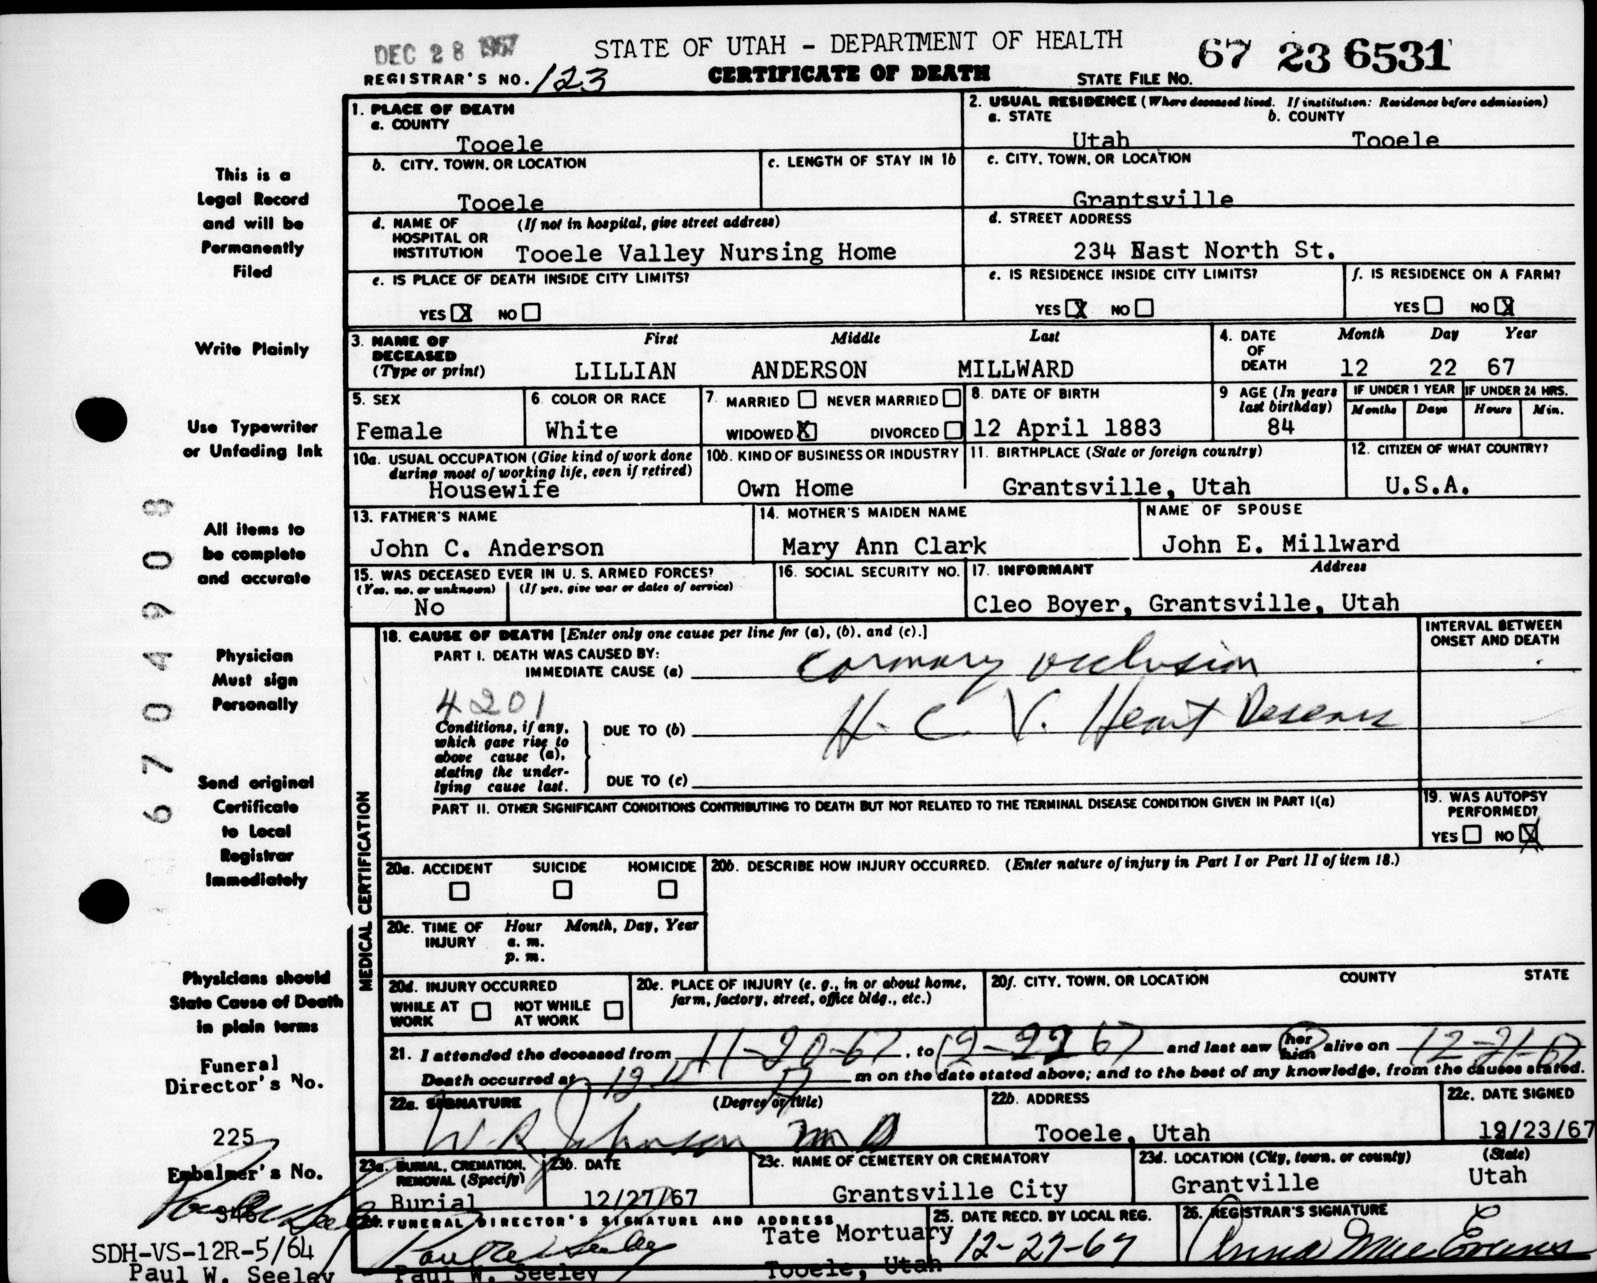 DEC 28 1967
STATE OF UTAH - DEPARTMENT OF HEALTH
67 23 6531
REGISTRAR'S NO. 123
CERTIFICATE OF DEATH
STATE FILE NO.
1. PLACE OF DEATH
a. COUNTY
Tooele
2. USUAL RESIDENCE (Where deceased lived. If institution: Residence before admission)
a. STATE b. COUNTY
Utah Tooele
b. CITY, TOWN, OR LOCATION
Tooele
c. LENGTH OF STAY IN 1b
c. CITY, TOWN, OR LOCATION
Grantsville
d. NAME OF (If not in hospital, give street address)
HOSPITAL OR
INSTITUTION Tooele Valley Nursing Home
d. STREET ADDRESS
234 East North St.
e. IS PLACE OF DEATH INSIDE CITY LIMITS?
YES X NO
e. IS RESIDENCE INSIDE CITY LIMITS?
YES X NO
f. IS RESIDENCE ON A FARM?
YES NO X
3. NAME OF First Middle Last
DECEASED
(Type or print) LILLIAN ANDERSON MILLWARD
4. DATE Month Day Year
OF
DEATH 12 22 67
5. SEX
Female
6. COLOR OR RACE
White
7. MARRIED NEVER MARRIED
WIDOWED X DIVORCED
8. DATE OF BIRTH
12 April 1883
9 AGE (In years
last birthday)
84
IF UNDER 1 YEAR IF UNDER 24 HRS.
Months Days Hours Min.
10a. USUAL OCCUPATION (Give kind of work done
during most of working life, even if retired)
Housewife
10b. KIND OF BUSINESS OR INDUSTRY
Own Home
11. BIRTHPLACE (State or foreign country)
Grantsville, Utah
12. CITIZEN OF WHAT COUNTRY?
U.S.A.
13. FATHER'S NAME
John C. Anderson
14. MOTHER'S MAIDEN NAME
Mary Ann Clark
NAME OF SPOUSE
John E. Millward
15. WAS DECEASED EVER IN U. S. ARMED FORCES?
(Yes, no, or unknown) (If yes, give war or dates of service)
No
16. SOCIAL SECURITY NO.
17. INFORMANT Address
Cleo Boyer, Grantsville, Utah
MEDICAL CERTIFICATION
18. CAUSE OF DEATH [Enter only one cause per line for (a), (b), and (c).]
INTERVAL BETWEEN
ONSET AND DEATH
PART I. DEATH WAS CAUSED BY:
IMMEDIATE CAUSE (a) Coronary occlusion
4201
Conditions, if any,
which gave rise to
above cause (a),
stating the under-
lying cause last.
DUE TO (b) H. C. V. Heart Disease
DUE TO (c)
PART II. OTHER SIGNIFICANT CONDITIONS CONTRIBUTING TO DEATH BUT NOT RELATED TO THE TERMINAL DISEASE CONDITION GIVEN IN PART I(a)
19. WAS AUTOPSY
PERFORMED?
YES NO X
20a. ACCIDENT SUICIDE HOMICIDE
20b. DESCRIBE HOW INJURY OCCURRED. (Enter nature of injury in Part I or Part II of item 18.)
20c. TIME OF Hour Month, Day, Year
INJURY a. m.
p. m.
20d. INJURY OCCURRED
WHILE AT NOT WHILE
WORK AT WORK
20e. PLACE OF INJURY (e. g., in or about home,
farm, factory, street, office bldg., etc.)
20f. CITY, TOWN, OR LOCATION COUNTY STATE
21. I attended the deceased from 11-20-67, to 12-22 67 and last saw her him alive on 12-21-67
Death occurred at m on the date stated above; and to the best of my knowledge, from the causes stated.
22a. SIGNATURE (Degree or title)
W R Johnson M D
22b. ADDRESS
Tooele, Utah
22c. DATE SIGNED
12/23/67
23a. BURIAL, CREMATION,
REMOVAL (Specify)
Burial
23b. DATE
12/27/67
23c. NAME OF CEMETERY OR CREMATORY
Grantsville City
23d. LOCATION (City, town, or county) (State)
Grantville Utah
24. FUNERAL DIRECTOR'S SIGNATURE AND ADDRESS
Paul W. Seeley
Tate Mortuary
Paul W. Seeley Tooele, Utah
25. DATE RECD. BY LOCAL REG.
12-27-67
26. REGISTRAR'S SIGNATURE
Anna Mae Evans
This is a
Legal Record
and will be
Permanently
Filed
Write Plainly
Use Typewriter
or Unfading Ink
All items to
be complete
and accurate
Physician
Must sign
Personally
Send original
Certificate
to Local
Registrar
Immediately
Physicians should
State Cause of Death
in plain terms
Funeral
Director's No.
225
Embalmer's No.
SDH-VS-12R-5/64
Paul W. Seeley
6704908